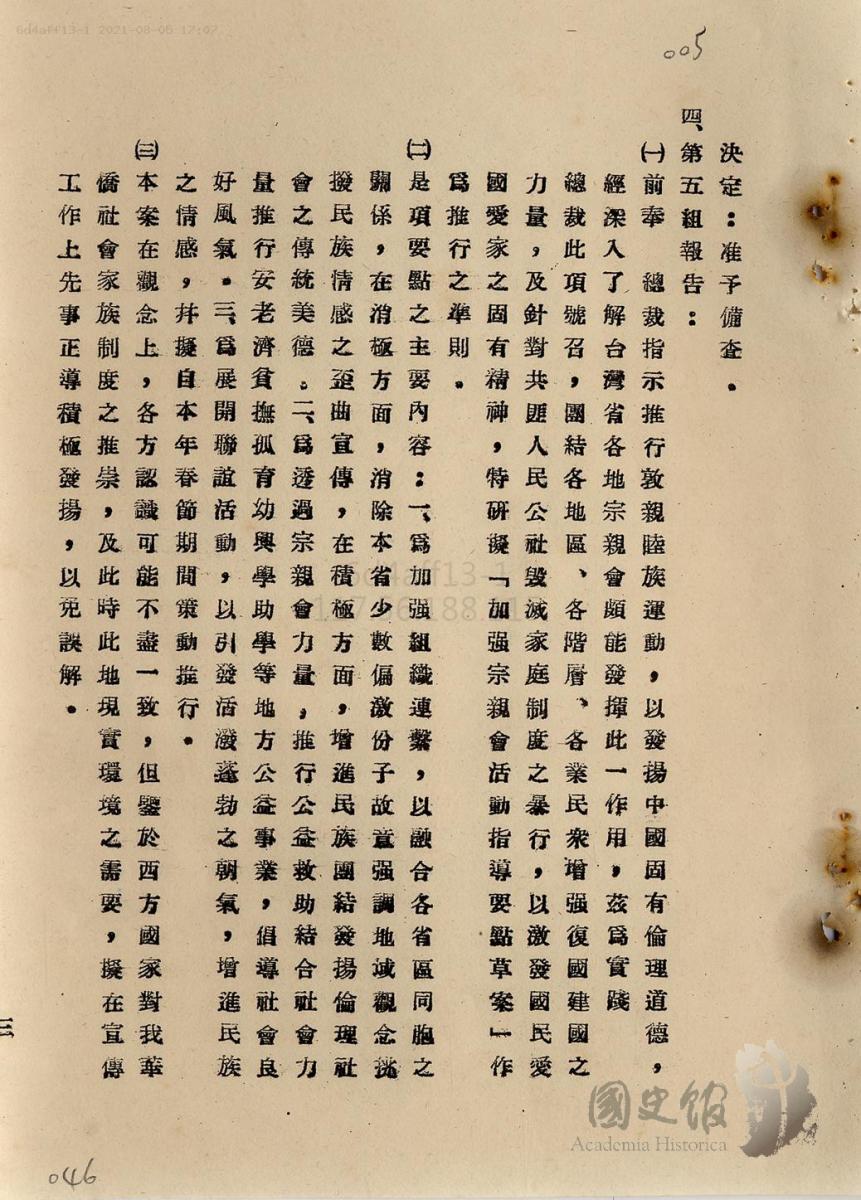 6d4aff13-1 2021-08-05 17:07
005
決定：准予備查．
四、第五組報告：
㈠前奉　總裁指示推行敦親陸族運動，以發揚中國固有倫理道德，
經深入了解台灣省各地宗親會頗能發揮此一作用，茲爲實踐
總裁此項號召，團結各地區、各階層、各業民衆增强復國建國之
力量，及針對共匪人民公社毀滅家庭制度之暴行，以激發國民愛
國愛家之固有精神，特研擬「加强宗親會活動指導要點草案」作
爲推行之準則．
㈡是項要點之主要內容：一、爲加强組織連繫，以融合各省區同胞之
關係，在消極方面，消除本省少數偏激份子故意强調地域觀念挑
撥民族情感之歪曲宣傳，在積極方面，增進民族團結發揚倫理社
會之傳統美德。二、爲透過宗親會力量，推行公益救助結合社會力
量推行安老濟貧撫孤育幼興學助學等地方公益事業，倡導社會良
好風氣．三、爲展開聯誼活動，以引發活潑蓬勃之朝氣，增進民族
之情感，幷擬自本年春節期間策動推行．
㈢本案在觀念上，各方認識可能不盡一致，但鑒於西方國家對我華
僑社會家族制度之推崇，及此時此地現實環境之需要，擬在宣傳
工作上先事正導積極發揚，以免誤解．
三
046
國史館
Academia Historica